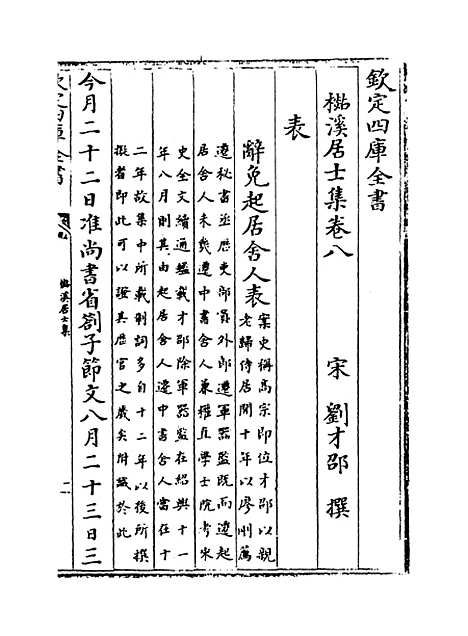 欽定四庫全書
檆溪居士集卷八
宋 劉才邵 撰
表
辭免起居舍人表
案史稱髙宗即位才邵以親
老歸侍居閒十年以廖剛薦
遷秘書丞歴吏部員外郎遷軍器監既而遷起
居舍人未幾遷中書舍人兼權直學士院考宋
史全文續通鑑載才邵除軍器監在紹興十一
年八月則其由起居舍人遷中書舍人當在十
二年故集中所載制詞多自十二年以後所撰
擬者即此可以證其歴官之歲矣附識於此
今月二十二日准尚書省劄子節文八月二十三日三
欽定四庫全書
檆溪居士集